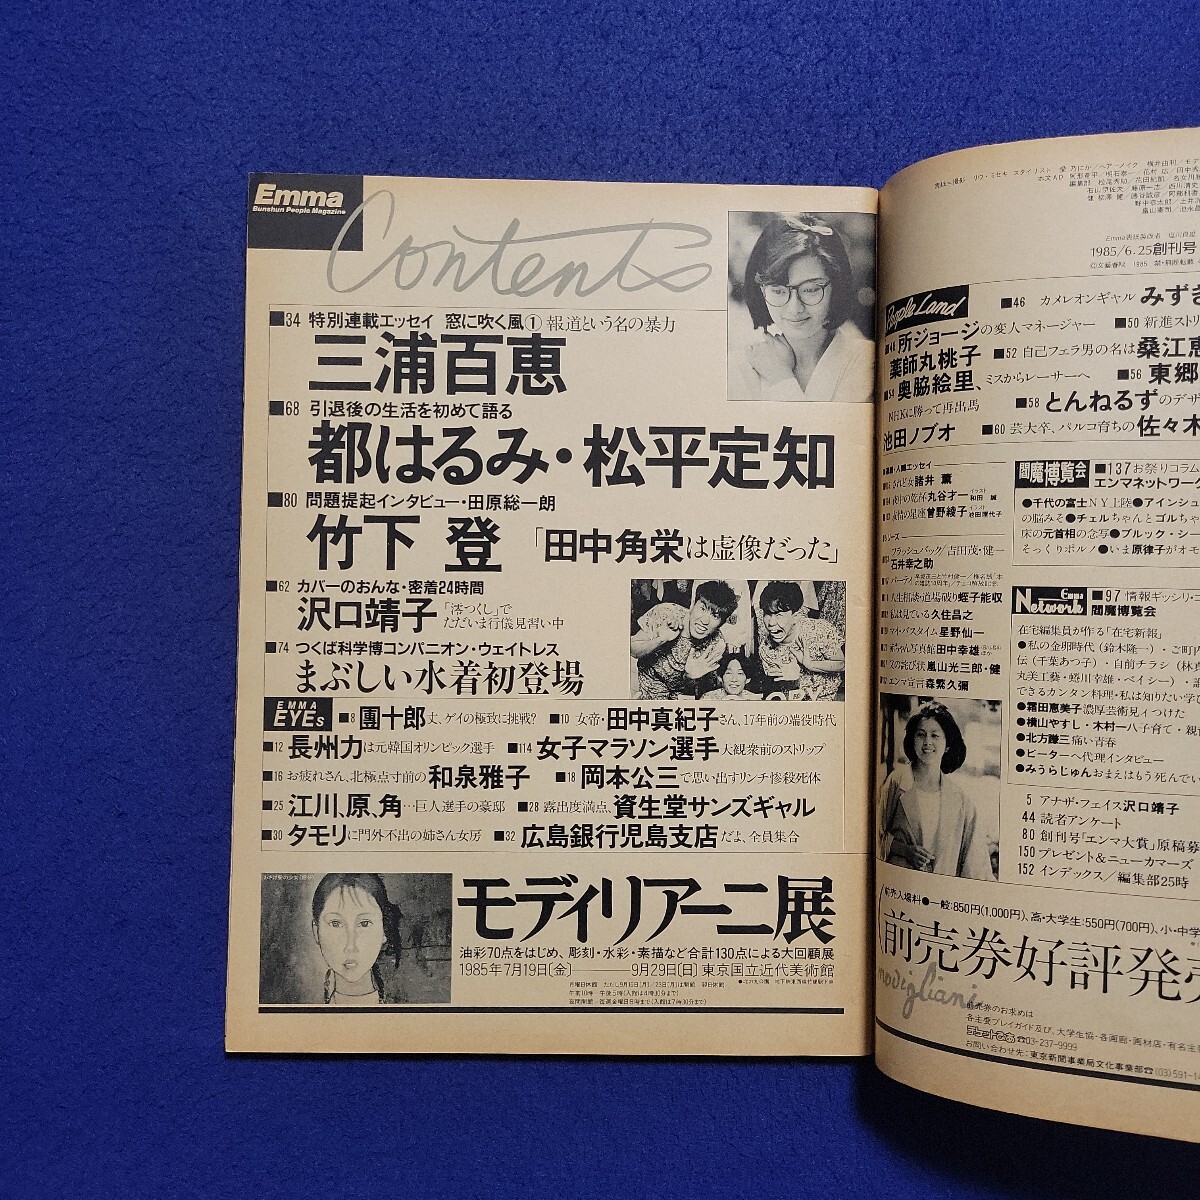 Emma
Bunshun People Magazine
Contents
■34 特別連載エッセイ 窓に吹く風① 報道という名の暴力
三浦百恵
■68 引退後の生活を初めて語る
都はるみ・松平定知
■80 問題提起インタビュー・田原総一朗
竹下 登 「田中角栄は虚像だった」
■62 カバーのおんな・密着24時間
沢口靖子 「澪つくし」で
ただいま行儀見習い中
■74 つくば科学博コンパニオン・ウェイトレス
まぶしい水着初登場
EMMA
EYEs
■8 團十郎丈、ゲイの極致に挑戦? ■10 女帝・田中真紀子さん、17年前の端役時代
■12 長州力は元韓国オリンピック選手 ■114 女子マラソン選手大観衆前のストリップ
■16 お疲れさん、北極点寸前の和泉雅子 ■18 岡本公三で思い出すリンチ惨殺死体
■25 江川、原、角…巨人選手の豪邸 ■28 露出度満点、資生堂サンズギャル
■30 タモリに門外不出の姉さん女房 ■32 広島銀行児島支店だよ、全員集合
モディリアーニ展
油彩70点をはじめ、彫刻・水彩・素描など合計130点による大回顧展
1985年7月19日(金)――9月29日(日) 東京国立近代美術館
1985/6.25創刊号
People Land
■46 カメレオンギャル みずき
所ジョージの変人マネージャー ■50 新進ストリ
薬師丸桃子 ■52 自己フェラ男の名は桑江恵
奥脇絵里、ミスからレーサーへ ■56 東郷
NHKに勝って再出馬 ■58 とんねるずのデザ
池田ノブオ ■60 芸大卒、パルコ育ちの佐々木
諸井 薫
丸谷才一
曽野綾子
フラッシュバック/吉田茂・健一
石井幸之助
人生相談・道場破り蛭子能収
私は見ている久住昌之
星野仙一
田中幸雄
嵐山光三郎・健
エンマ宣言森繁久彌
閻魔博覧会
■137 お祭りコラム
エンマネットワーク
●千代の富士NY上陸●アインシュ
の脳みそ●チェルちゃんとゴルちゃ
床の元首相の念写●ブルック・シー
そっくりポルノ●いま原律子がオモ
Emma
Network
■97 情報ギッシリ・コ
閻魔博覧会
在宅編集員が作る「在宅新報」
●私の金卵時代(鈴木隆一)・ご町内
伝(千葉あつ子)・自前チラシ(林真
丸美工藝・蜷川幸雄・ベイシー)・誰
できるカンタン料理・私は知りたい学び
●霜田恵美子濃厚芸術見ィつけた
●横山やすし・木村一八子育て・親育
●北方謙三痛い青春
●ピーターへ代理インタビュー
●みうらじゅんおまえはもう死んでい
5 アナザ・フェイス沢口靖子
44 読者アンケート
80 創刊号「エンマ大賞」原稿募
150 プレゼント&ニューカマーズ
152 インデックス/編集部25時
前売入場料●一般:850円(1,000円)、高・大学生:550円(700円)、小・中学
前売券好評発売
modigliani
前売券のお求めは
各主要プレイガイド及び、大学生協・各画廊・画材店・有名主
チケットぴあ☎03-237-9999
お問い合わせ先:東京新聞事業局文化事業部☎(03)591-14